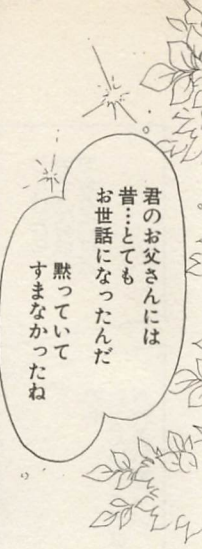 君のお父さんには
昔…とても
お世話になったんだ
黙っていて
すまなかったね